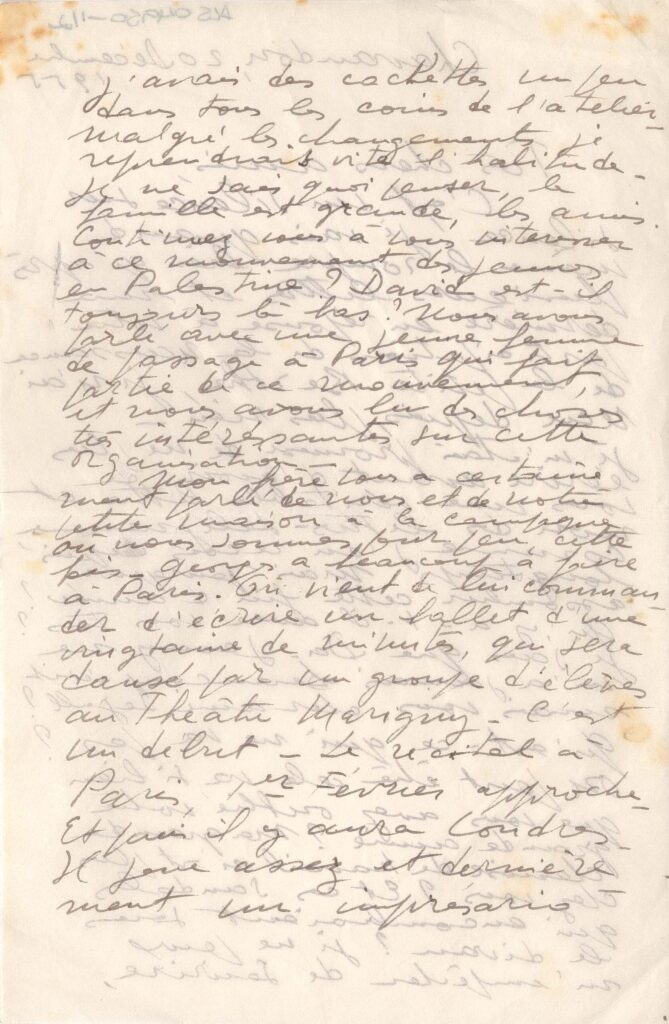 J'avais des cachettes un peu
dans tous les coins de l'atelier
malgré les changements je
reprendrais vite l'habitude -
Je ne sais quoi penser, la
famille est grande, les amis.
Continuez vous à vous intéresser
à ce mouvement des jeunes
en Palestine? David est-il
toujours là bas? Nous avons
parlé avec une jeune femme
de passage à Paris qui fait
partie de ce mouvement,
et nous avons lu des choses
très intéressantes sur cette
organisation -
Mon frère vous a certaine
ment parlé de nous et de notre
petite maison à la campagne
où nous sommes pour peu cette
fois - Georges a beaucoup à faire
à Paris. On vient de lui comman
der d'écrire un ballet d'une
vingtaine de minutes, qui sera
dansé par un groupe d'élèves
au Théâtre Marigny - C'est
un début - Le récital à
Paris 1er Février approche -
Et puis il y aura Londres -
Il joue assez et dernière
ment un imprésario